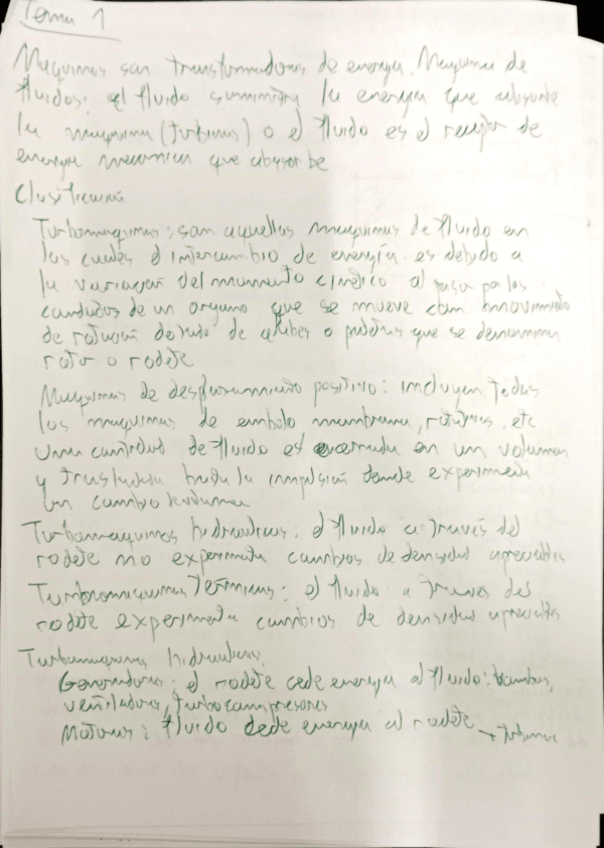 Tema 1
Maquinas son transformadoras de energia. Maquina de
fluidos: el fluido suministra la energia que absorbe
la maquina (turbinas) o el fluido es el receptor de
energia mecanica que absorbe
Clasificación
Turbomaquinas: son aquellas maquinas de fluido en
las cuales el intercambio de energía es debido a
la variación del momento cinético al pasar por los
conductos de un organo que se mueve con movimiento
de rotación dotado de alabes o paletas que se denomina
rotor o rodete
Maquinas de desplazamiento positivo: incluyen todas
las maquinas de embolo membrana, rotativas, etc
Una cantidad de fluido es encerrada en un volumen
y trasladada hasta la impulsión donde experimenta
un cambio volumen
Turbomaquinas hidraulicas: el fluido a través del
rodete no experimenta cambios de densidad apreciables
Turbomaquinas Térmicas: el fluido a traves del
rodete experimenta cambios de densidad apreciables
Turbomaquinas hidraulicas:
Generadoras: el rodete cede energia al fluido: bombas,
ventiladores, turbocompresores
Motoras: fluido cede energia al rodete → turbinas